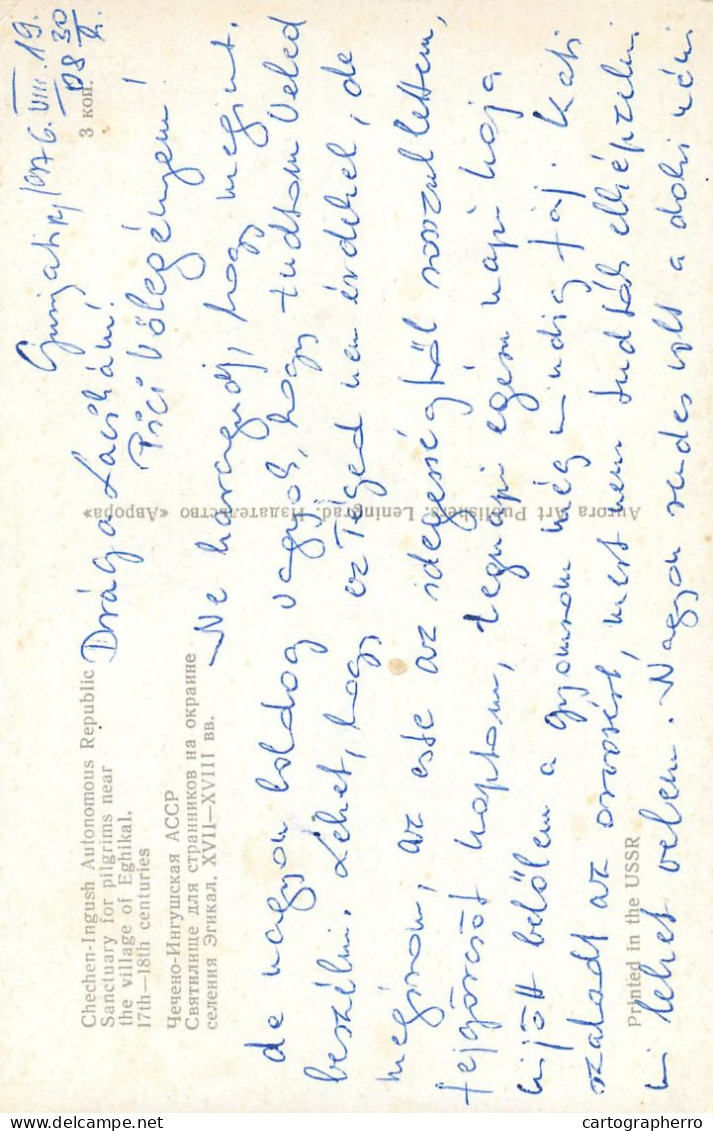 Chechen-Ingush Autonomous Republic
Sanctuary for pilgrims near
the village of Eghikal.
17th—18th centuries
Чечено-Ингушская АССР
Святилище для странников на окраине
селения Эгикал. XVII—XVIII вв.
3 коп.
Aurora Art Publishers. Leningrad. Издательство «Аврора»
Printed in the USSR
1976. VIII. 19.
08 30 h.
Drága Lacikám!
Pici Vőlegényem!
Ne haragudj, hogy megint,
de nagyon boldog vagyok, hogy tudtam Veled
beszélni. Lehet, hogy ez Téged nem érdekel, de
megírom, az este az idegességtől rosszul lettem,
fejgörcsöt kaptam, tegnapi egész napi kaja
kijött belőlem a gyomrom még mindig fáj. Kati
szaladt az orvosért, mert nem tudták elképzelni
mi lehet velem. Nagyon rendes volt a doki néni
cartographerro